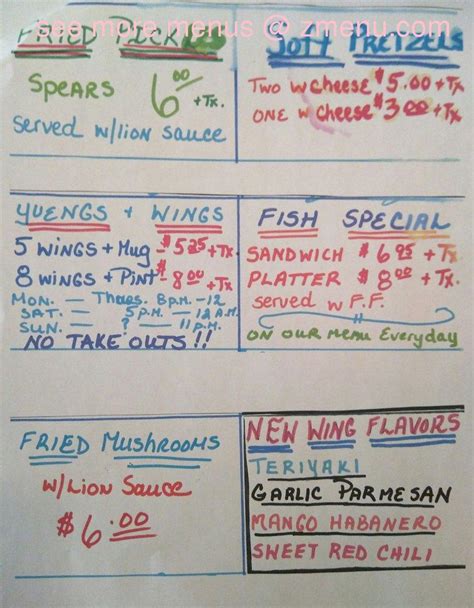 see more menus @ zmenu.com
FRIED PICKLES
SPEARS 6.00 + Tx.
served w/lion sauce
SOFT PRETZELS
TWO w CHEESE $5.00 + Tx
ONE w CHEESE $3.00 + Tx.
YUENGS + WINGS
5 WINGS + MUG - $5.25 + Tx.
8 WINGS + PINT - $8.00 + Tx
MON. — Thurs. 8 p.m. - 12
SAT. — 5 P.M. — 12 A.M.
SUN. — ? — 11 P.M. ?
NO TAKE OUTS !!
FISH SPECIAL
SANDWICH $6.95 + Tx
PLATTER $8.00 + Tx
served w F.F.
ON OUR MENU Everyday
FRIED MUSHROOMS
w/LION SAUCE
$6.00
NEW WING FLAVORS
TERIYAKI
GARLIC PARMESAN
MANGO HABANERO
SWEET RED CHILI